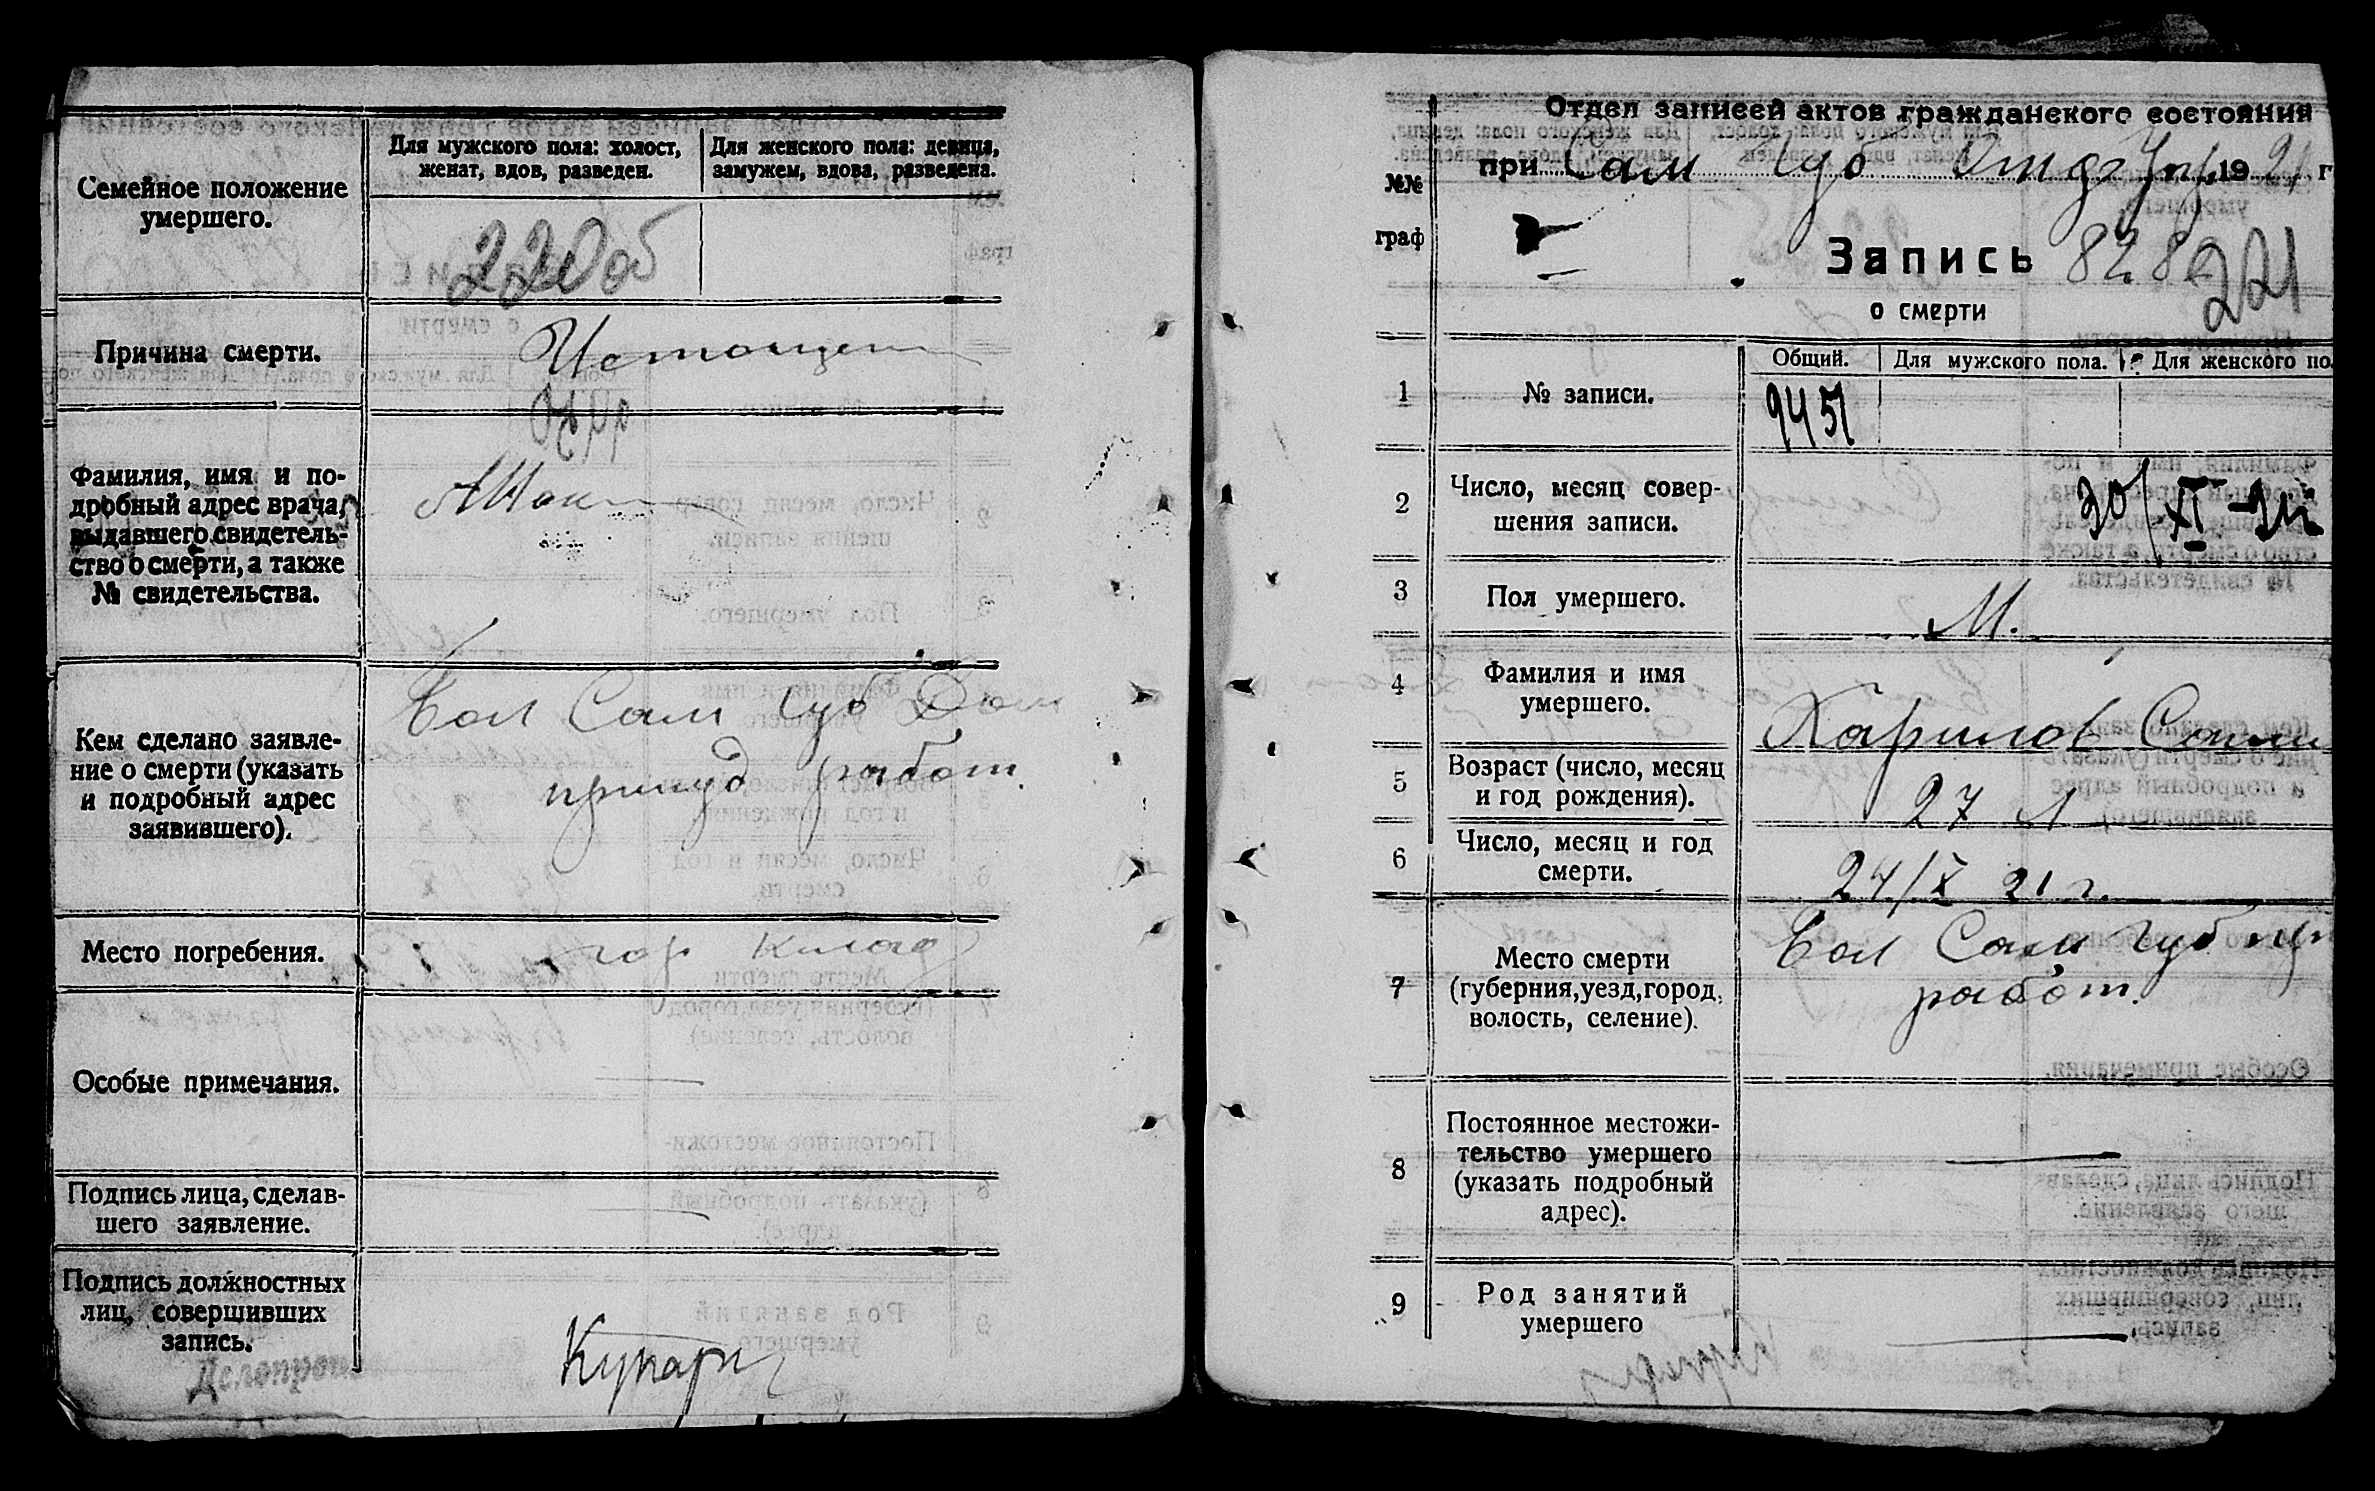 Семейное положение
умершего.
Для мужского пола: холост,
женат, вдов, разведен.
Для женского пола: девица,
замужем, вдова, разведена.
220 об
Причина смерти.
Истощен
Фамилия, имя и по-
дробный адрес врача,
выдавшего свидетель-
ство о смерти, а также
№ свидетельства.
Кем сделано заявле-
ние о смерти (указать
и подробный адрес
заявившего).
Бол Сам Губ Дом
принуд работ.
Место погребения.
гор клад
Особые примечания.
Подпись лица, сделав-
шего заявление.
Подпись должностных
лиц, совершивших
запись.
Делопрои
Отдел записей актов гражданского состояния
при Сам Губ Отд 1921 г
№№
граф
Запись 8282
221
о смерти
1
№ записи.
Общий.
Для мужского пола.
Для женского по
9451
2
Число, месяц совер-
шения записи.
20/XI-21
3
Пол умершего.
М.
4
Фамилия и имя
умершего.
5
Возраст (число, месяц
и год рождения).
27 л
6
Число, месяц и год
смерти.
24/X 21 г.
7
Место смерти
(губерния, уезд, город,
волость, селение).
Бол Сам Губ пр
работ.
8
Постоянное местожи-
тельство умершего
(указать подробный
адрес).
9
Род занятий
умершего